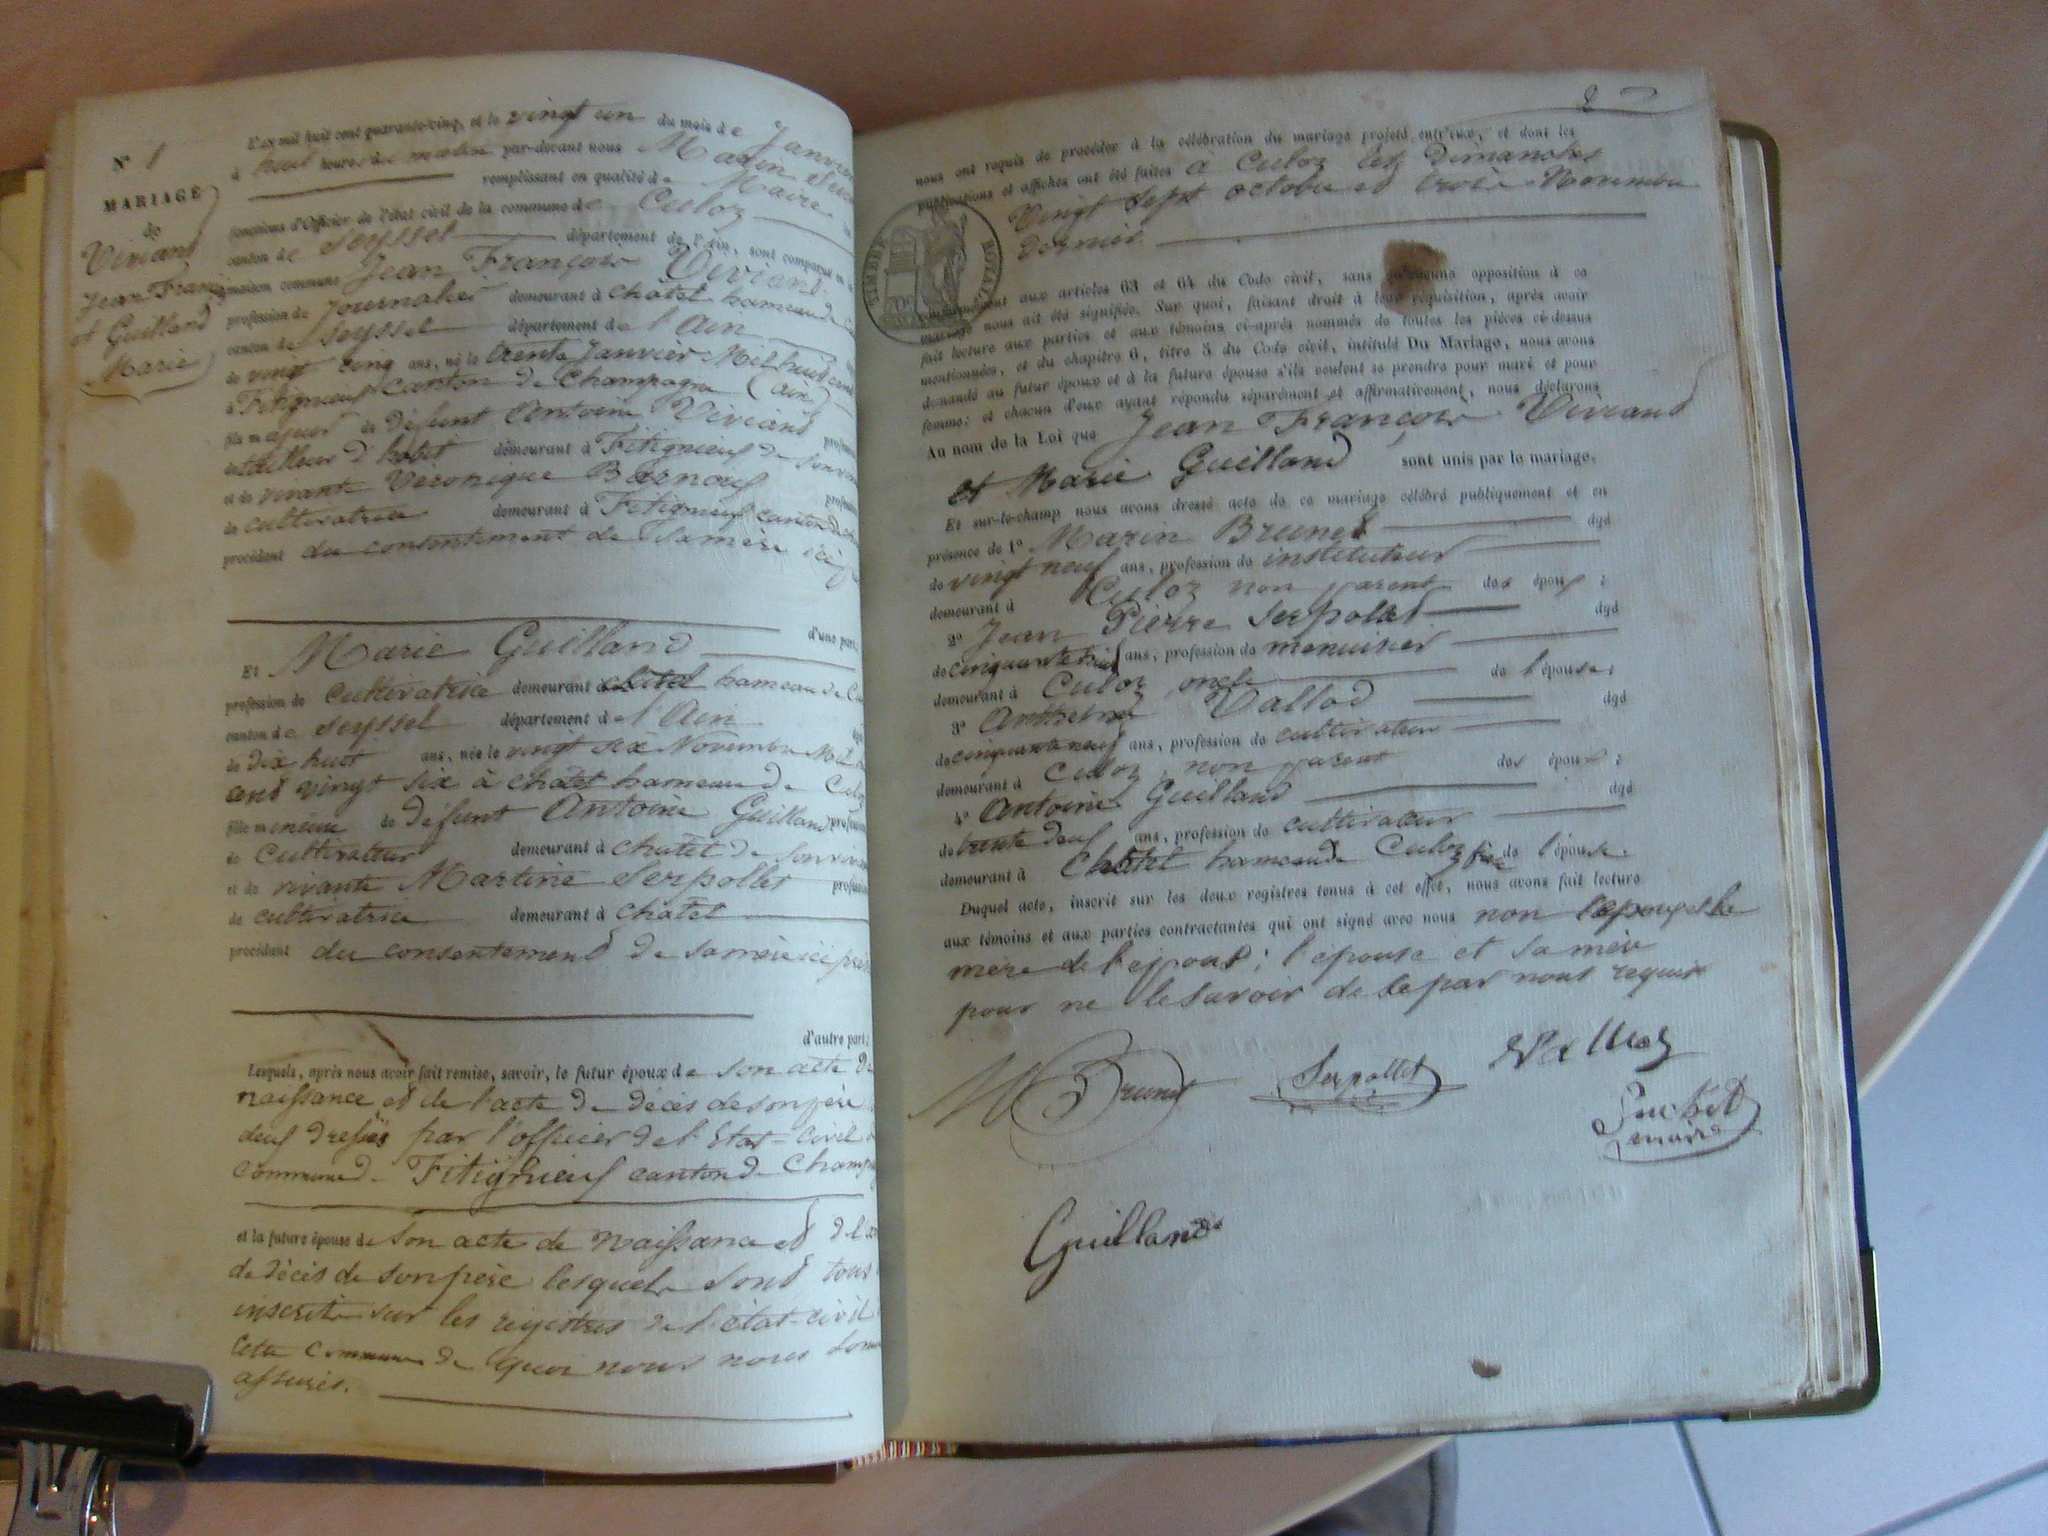 N° 1
MARIAGE
de
Viviand
Jean François
et Guilland
Marie
L'an mil huit cent quarante-cinq, et le vingt un du mois de Janvier
à huit heures du matin par-devant nous Marin
remplissant en qualité de Maire
fonctions d'Officier de l'état civil de la commune de Culoz
canton de Seyssel département de l'Ain, sont comparus en
maison commune Jean François Viviand
profession de Journalier demeurant à châtel hameau de
canton de Seyssel département de l'Ain
de vingt cinq ans, né le trente Janvier Mil huit cent
à Fitignieu canton de Champagne (Ain)
fils majeur de défunt Antoine Viviand
de tailleur d'habit demeurant à Fitignieu de son
et de vivante Véronique
de cultivatrice demeurant à Fitignieu canton de
procédant du contentement de sa mère ici
d'une part;
Et Marie Guilland
profession de cultivatrice demeurant à châtel hameau de
canton de Seyssel département de l'Ain
de dix huit ans, née le vingt six Novembre Mil
cent vingt six à chatel hameau de Culoz
fille mineure de défunt Antoine Guilland profession
de Cultivateur demeurant à chatel de son vivant
et de vivante Martine Serpollet profession
de cultivatrice demeurant à chatel
procédant du consentement de sa mère ici
d'autre part;
Lesquels, après nous avoir fait remise, savoir, le futur époux de son acte de
naissance et de l'acte de décès de son père
deux dressés par l'officier de l'Etat-civil
commune de Fitignieu canton de
et la future épouse de son acte de naissance et de
de décès de son père lesquels sont tous
inscrits sur les registres de l'état-civil
cette commune de quoi nous nous
assurés.
2
nous ont requis de procéder à la célébration du mariage projeté entr'eux, et dont les
publications et affiches ont été faites à Culoz les dimanches
vingt sept octobre et trois Novembre
dernier
TIMBRE ROYAL
conformément aux articles 63 et 64 du Code civil, sans qu'aucune opposition à ce
mariage nous ait été signifiée. Sur quoi, faisant droit à leur réquisition, après avoir
fait lecture aux parties et aux témoins ci-après nommés de toutes les pièces ci-dessus
mentionnées, et du chapitre 6, titre 5 du Code civil, intitulé Du Mariage, nous avons
demandé au futur époux et à la future épouse s'ils veulent se prendre pour mari et pour
femme: et chacun d'eux ayant répondu séparément et affirmativement, nous déclarons
Au nom de la Loi que Jean François Viviand
et Marie Guilland sont unis par le mariage.
Et sur-le-champ nous avons dressé acte de ce mariage célébré publiquement et en
présence de 1° Marin Brunet âgé
de vingt neuf ans, profession de instituteur
demeurant à Culoz non parent des époux;
2° Jean Pierre Serpollet âgé
de ans, profession de menuisier
demeurant à Culoz oncle de l'épouse;
3° Anthelme Vallod âgé
de cinquante neuf ans, profession de cultivateur
demeurant à Culoz, non parent des époux;
4° Antoine Guilland âgé
de trente deux ans, profession de cultivateur
demeurant à Chatel hameau de Culoz frère de l'épouse.
Duquel acte, inscrit sur les deux registres tenus à cet effet, nous avons fait lecture
aux témoins et aux parties contractantes qui ont signé avec nous non
mère de l'époux; l'épouse et sa mère
pour ne le savoir de ce par nous requis
M Brunet
Serpollet
Vallod
maire
Guilland